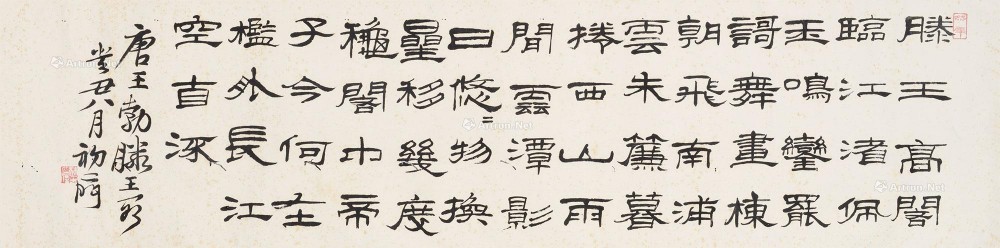 滕王高閣
臨江渚佩
玉鳴鑾罷
謌舞畫棟
朝飛南浦
雲朱簾暮
捲西山雨
閒雲潭影
日悠〻物換
星移幾度
穐閣中帝
子今何在
檻外長江
空自流
唐王勃滕王閣
癸丑八月初